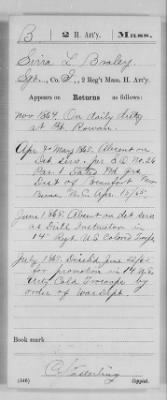 B | 2 H. Art'y. | Mass.
Sirra L. Braley
Sgt., Co. I, 2 Reg't Mass. H. Art'y.
Appears on
Returns as follows:
Nov 1864. On daily duty
at Ft. Rowan.
Apr & May 1865. Absent on
Det. Serv. per S.O. No. 26
Par. 1 Hd. qrs.
Dist of Beaufort
Berne N.C. Apr. 15/65.
June 1865: Absent on det serv
as Drill Instructor in
14" Regt. U.S. Colored Troops
July 1865. Disch'd June 25/65
for promotion in 14 U.S.
Arty Cold Troops by
order of War Dept.
Book mark:
(546)
Copyist.